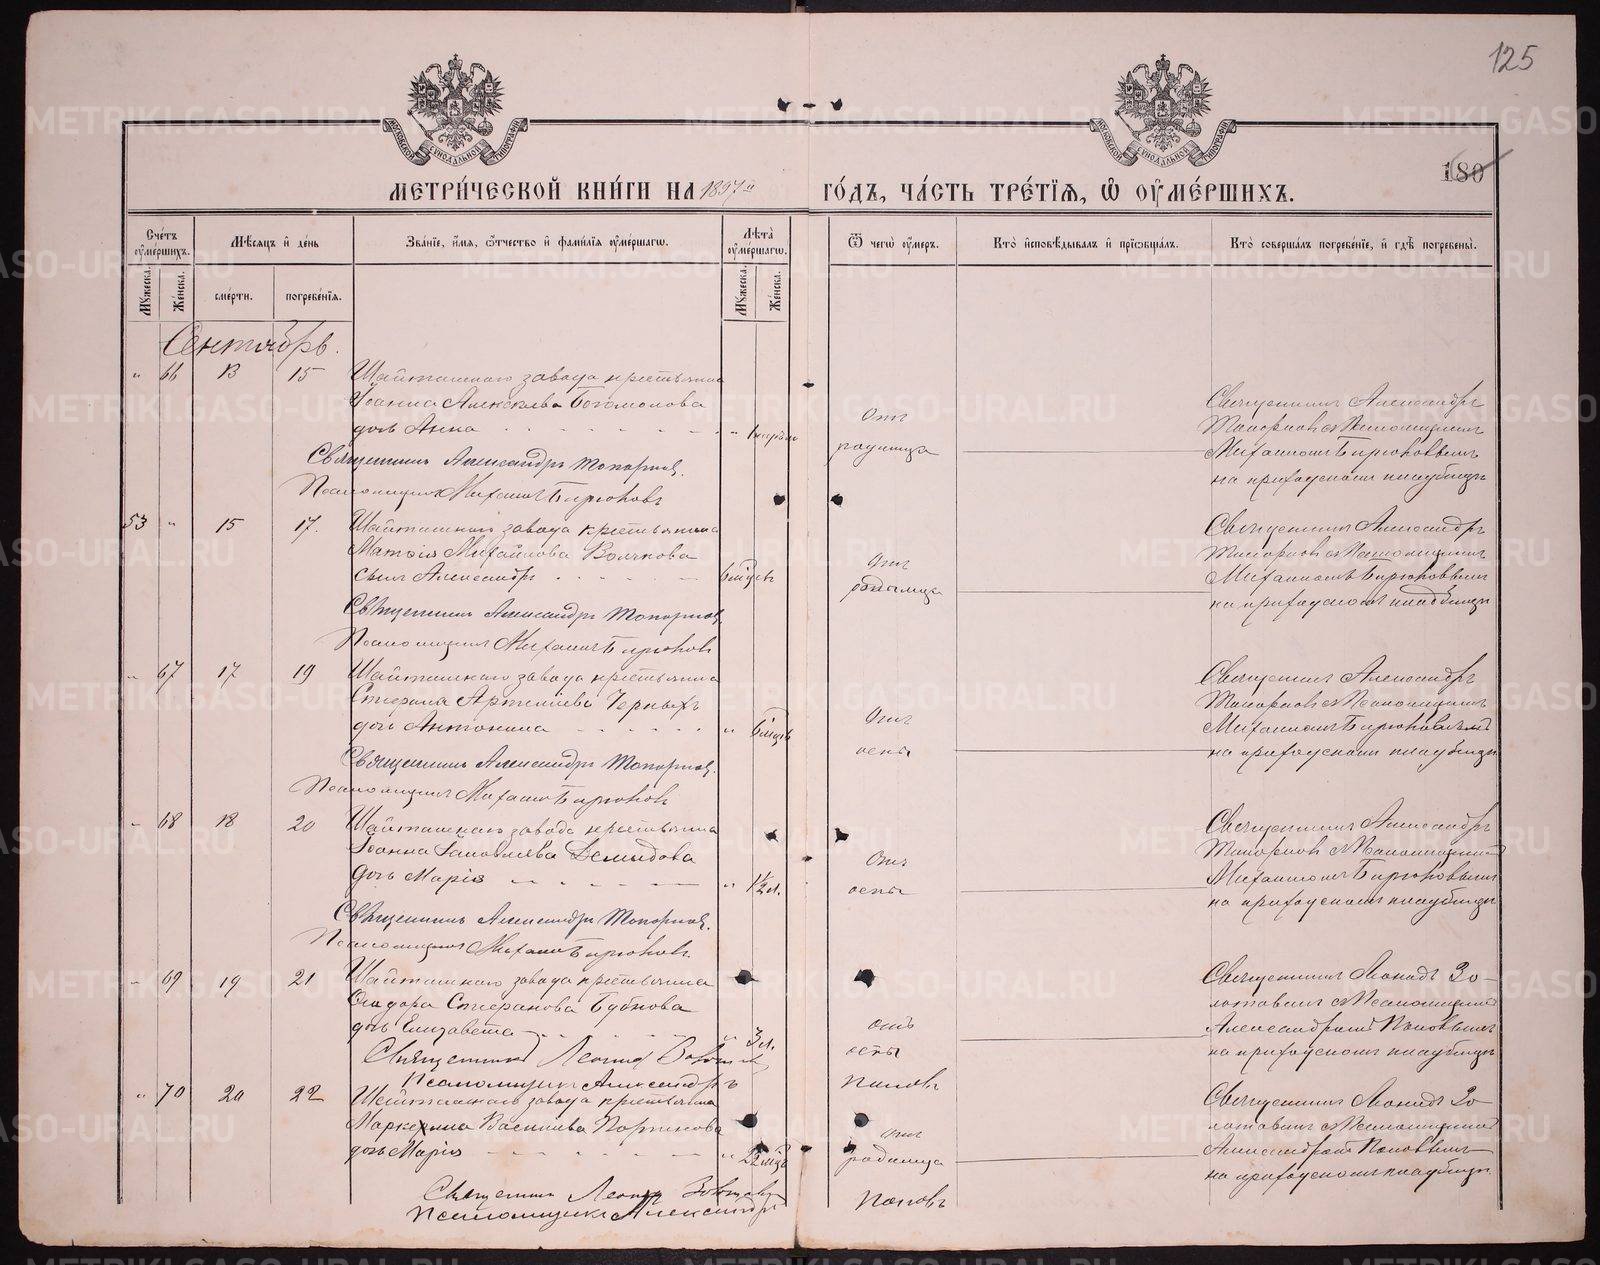 125
180
МЕТРИ́ЧЕСКОЙ КНИ́ГИ НА 1897й ГО́ДЪ, ЧА́СТЬ ТРЕ́ТІЯ, Ѡ ОУМЕ́РШИХЪ.
Сче́тъ оуме́ршихъ.
Мꙋжеска.
Же́нска.
Мѣ́сяцъ и де́нь
сме́рти.
погребе́нія.
Зва́ніе, и́мя, ѻ́тчество и фами́лія оуме́ршагѡ.
Лѣта̀ оуме́ршагѡ.
Мꙋжеска.
Же́нска.
Ѿ чегѡ̀ оу́меръ.
Кто̀ и҆сповѣ́дывалъ и прїѡбща́лъ.
Кто̀ соверша́лъ погребе́ніе, и гдѣ̀ погребены̀.
Сентябрь.
" 66 13 15 Шайтанскаго завода крестьянина
Іоанна Алексѣева Богомолова
дочь Анна
Отъ родимца
Священникъ Александръ
Топорковъ съ Псаломщикомъ
Михаиломъ Бирюковымъ
на приходскомъ кладбищѣ
Священникъ Александръ Топорковъ.
Псаломщикъ Михаилъ Бирюковъ
53 " 15 17. Шайтанскаго завода крестьянина
Михайлова Волчкова
сынъ Александръ 6 мѣсцъ
Отъ родимца
Священникъ Александръ
Топорковъ съ Псаломщикомъ
Михаиломъ Бирюковымъ
на приходскомъ кладбищѣ
Священникъ Александръ Топорковъ.
Псаломщикъ Михаилъ Бирюковъ
" 67 17 19 Шайтанскаго завода крестьянина
Стефана Артеміева Черныхъ
дочь Антонина " 6 мѣсцъ
Отъ оспы
Священникъ Александръ
Топорковъ съ Псаломщикомъ
Михаиломъ Бирюковымъ
на приходскомъ кладбищѣ
Священникъ Александръ Топорковъ.
Псаломщикъ Михаилъ Бирюковъ
" 68 18 20 Шайтанскаго завода крестьянина
Іоанна Іаковлева Демидова
дочь Марія " 1½ л.
Отъ оспы
Священникъ Александръ
Топорковъ съ Псаломщикомъ
Михаиломъ Бирюковымъ
на приходскомъ кладбищѣ
Священникъ Александръ Топорковъ.
Псаломщикъ Михаилъ Бирюковъ.
" 69 19 21 Шайтанскаго завода крестьянина
Ѳеодора Стефанова Бубнова
дочь Елизавета " 3 л.
отъ оспы
Священникъ Леонидъ Зо-
лотавинъ съ Псаломщикомъ
Александромъ Поповымъ
на приходскомъ кладбищѣ
Священникъ Леонидъ
Псаломщикъ Александръ Поповъ
" 70 20 22 Шайтанскаго завода крестьянина
Василіева
дочь Марія " 2½ мѣсц
отъ родимца
Священникъ Леонидъ Зо-
лотавинъ съ Псаломщикомъ
Александромъ Поповымъ
на приходскомъ кладбищѣ.
Священникъ Леонидъ
Псаломщикъ Александръ Поповъ
METRIKI.GASO-URAL.RU